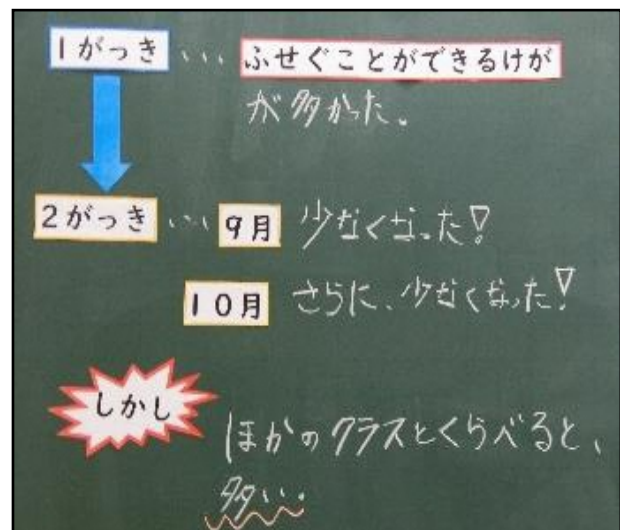 1がっき … ふせぐことができるけが
が多かった。
2がっき … 9月 少なくなった!
10月 さらに、少なくなった!
しかし
ほかのクラスとくらべると、
多い。